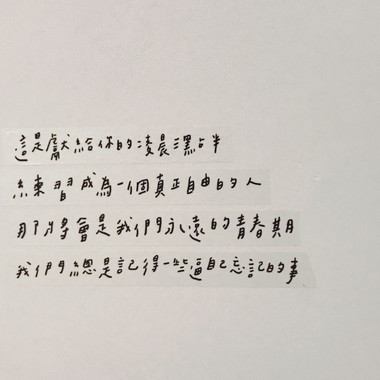 這是獻給你的凌晨漂點半
練習成為一個真正自由的人
那將會是我們永遠的青春期
我們總是記得一些逼自己忘記的事